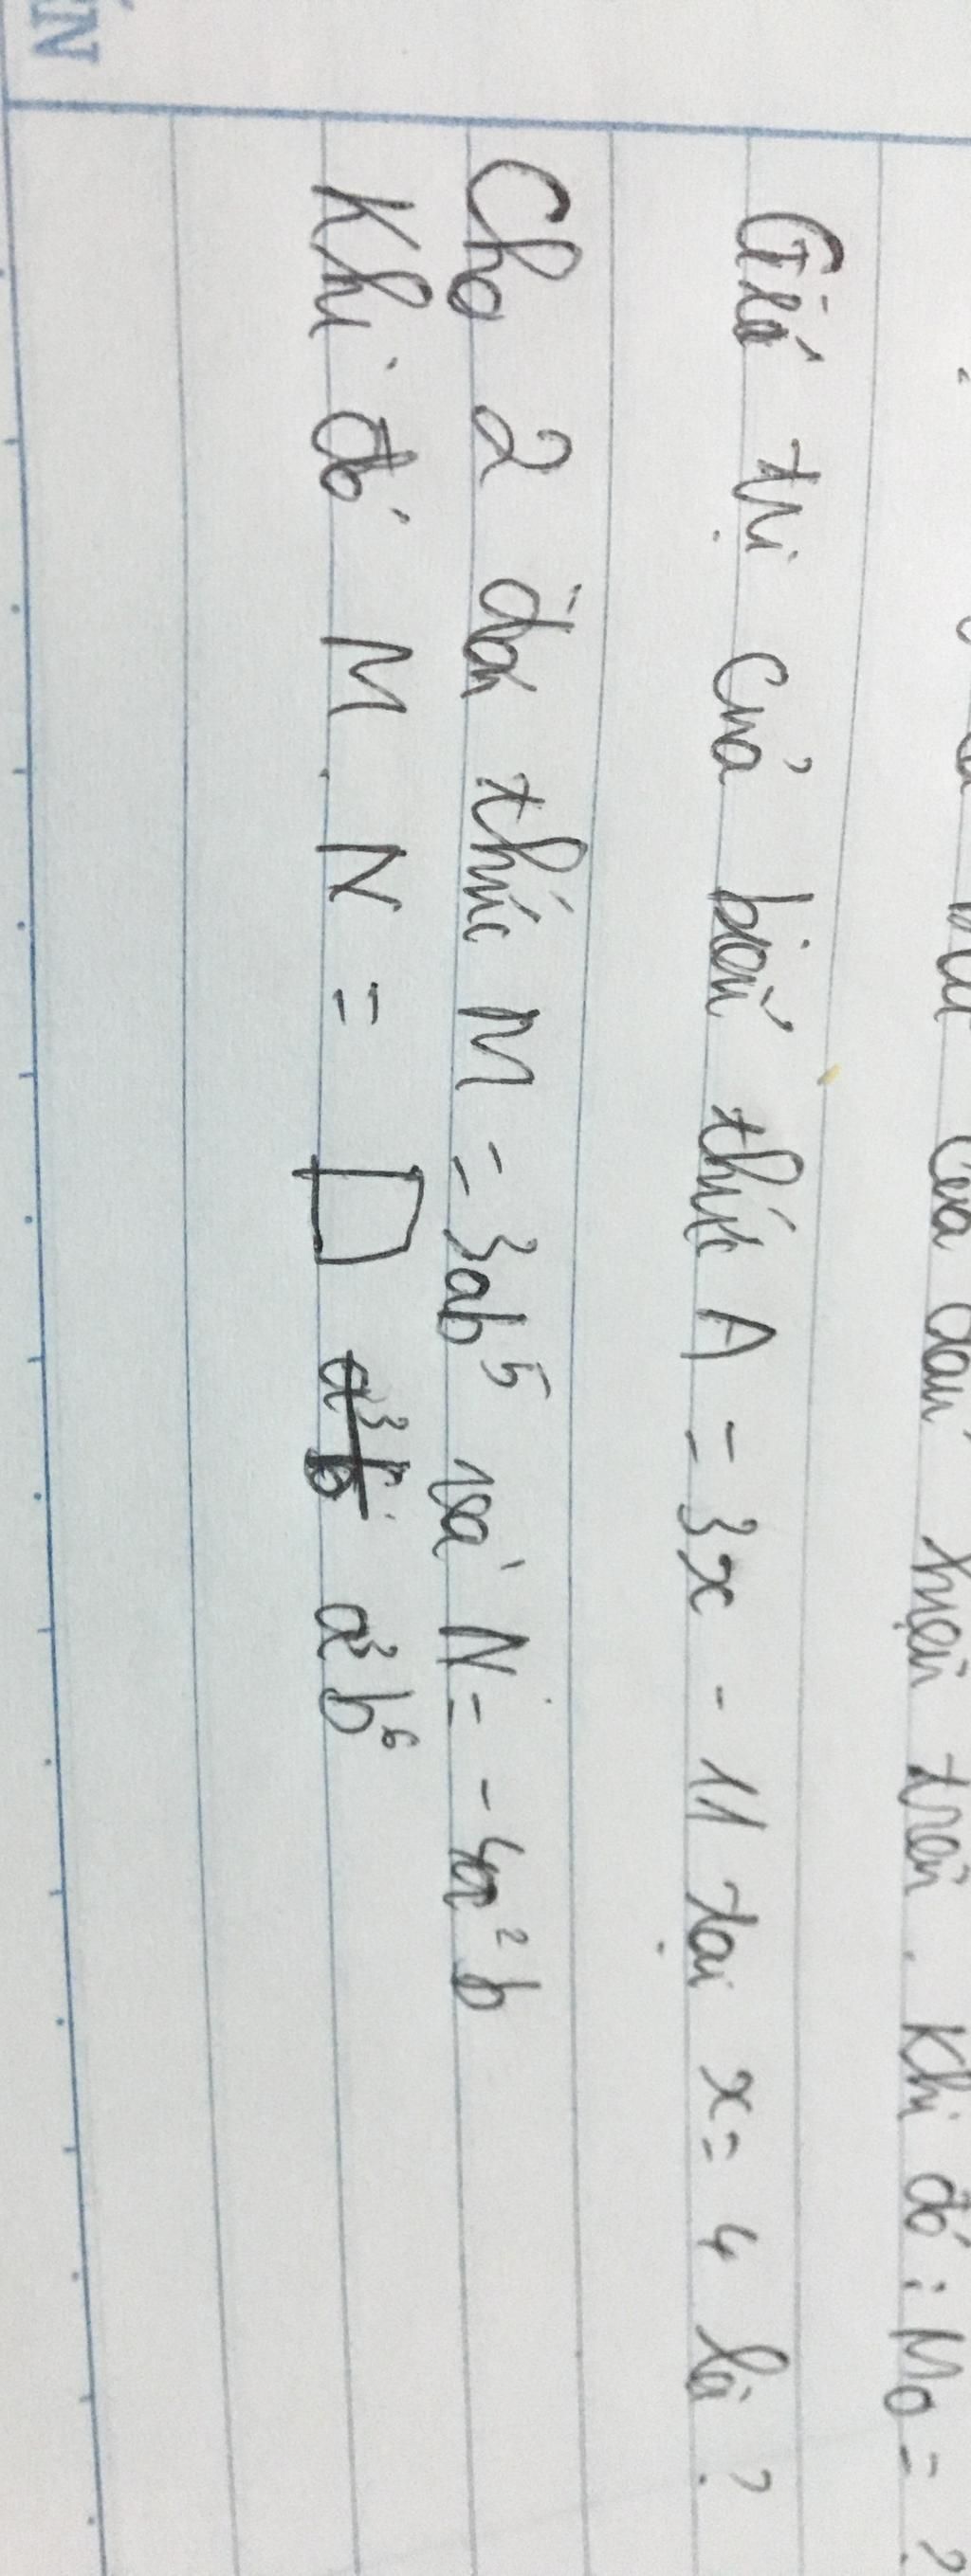 của dấu hiệu trên. Khi đó: M₀ = ?
Giá trị của biểu thức A = 3x - 11 tại x = 4 là ?
Cho 2 đa thức M = 3ab⁵ và N = - 4a²b
Khi đó M . N = □ a³b⁶
ÊN